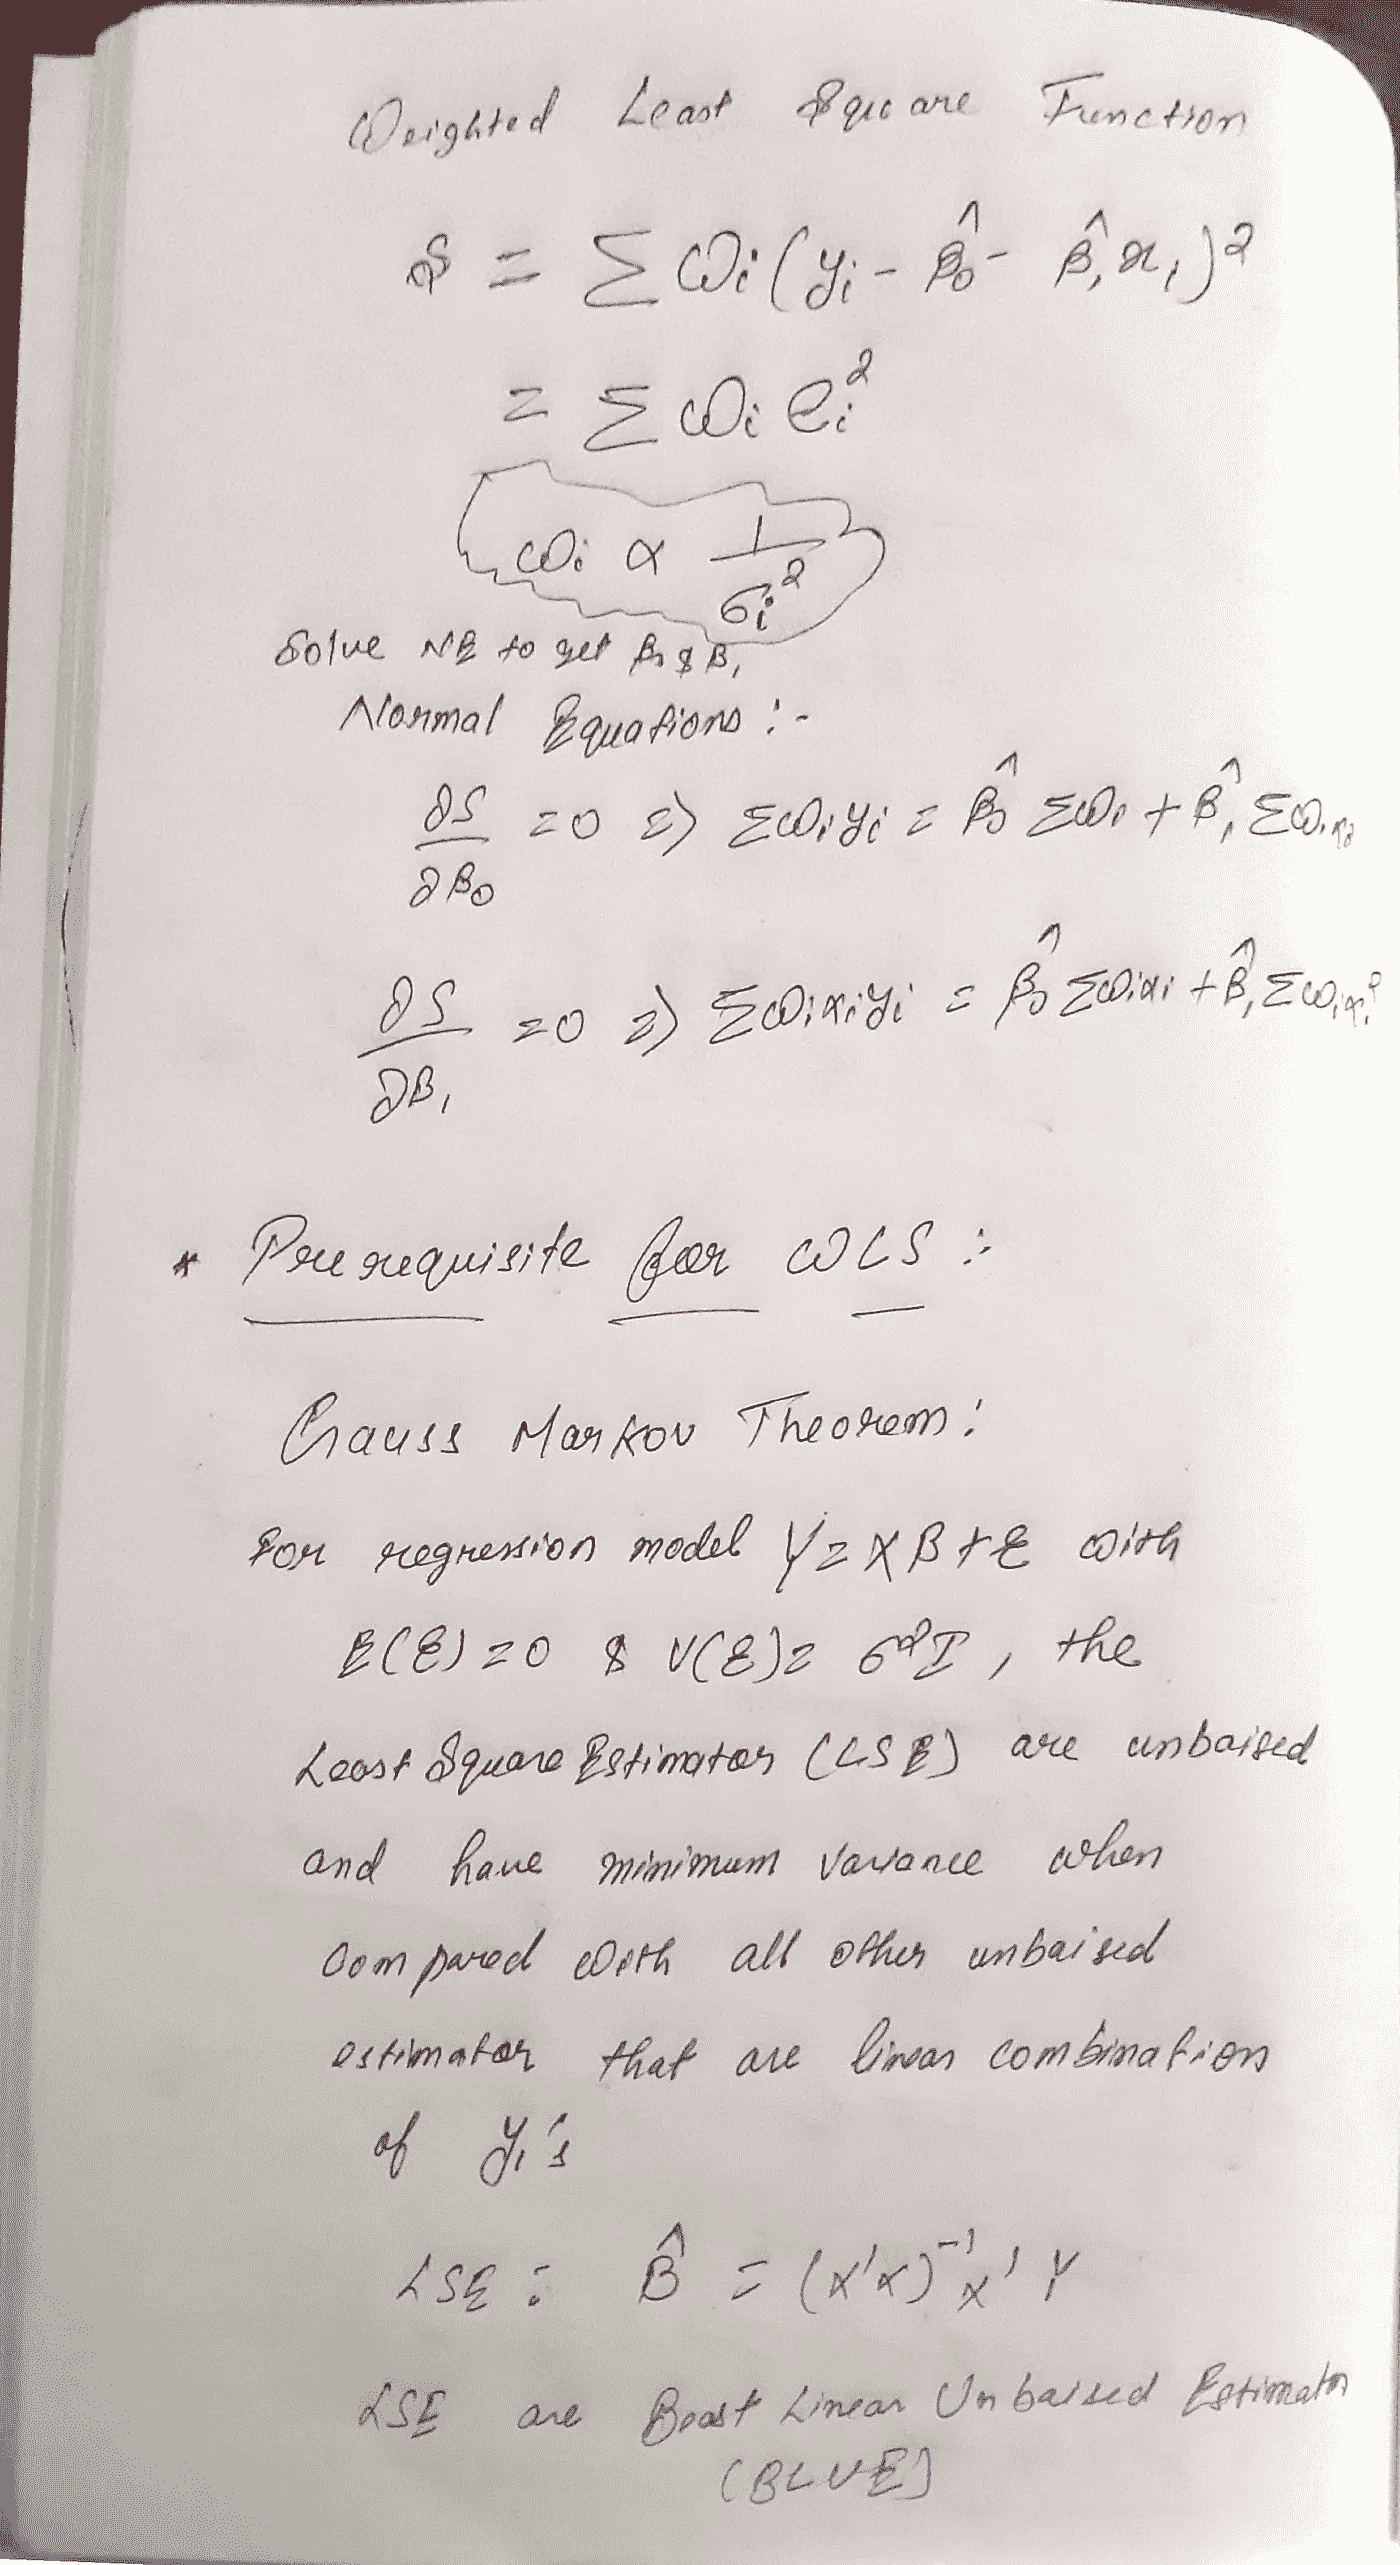 Weighted Least Square Function
S = Σ ωi (yi - β̂0 - β̂1 x1)²
= Σ ωi ei²
ωi α 1/σi²
Solve NE to get β0 & β1
Normal Equations :-
∂S/∂β0 = 0 => Σωiyi = β̂0 Σωi + β̂1 Σωixi
∂S/∂β1 = 0 => Σωixiyi = β̂0 Σωixi + β̂1 Σωixi²
* Prerequisite for WLS :
Gauss Markov Theorem :
For regression model Y = Xβ + ε with
E(ε) = 0 & V(ε) = σ²I , the
Least Square Estimator (LSE) are unbaised
and have minimum variance when
Compared with all other unbaised
estimator that are linear combination
of yi's
LSE : β̂ = (x'x)⁻¹x'Y
LSE are Beast Linear Unbaised Estimator
(BLUE)